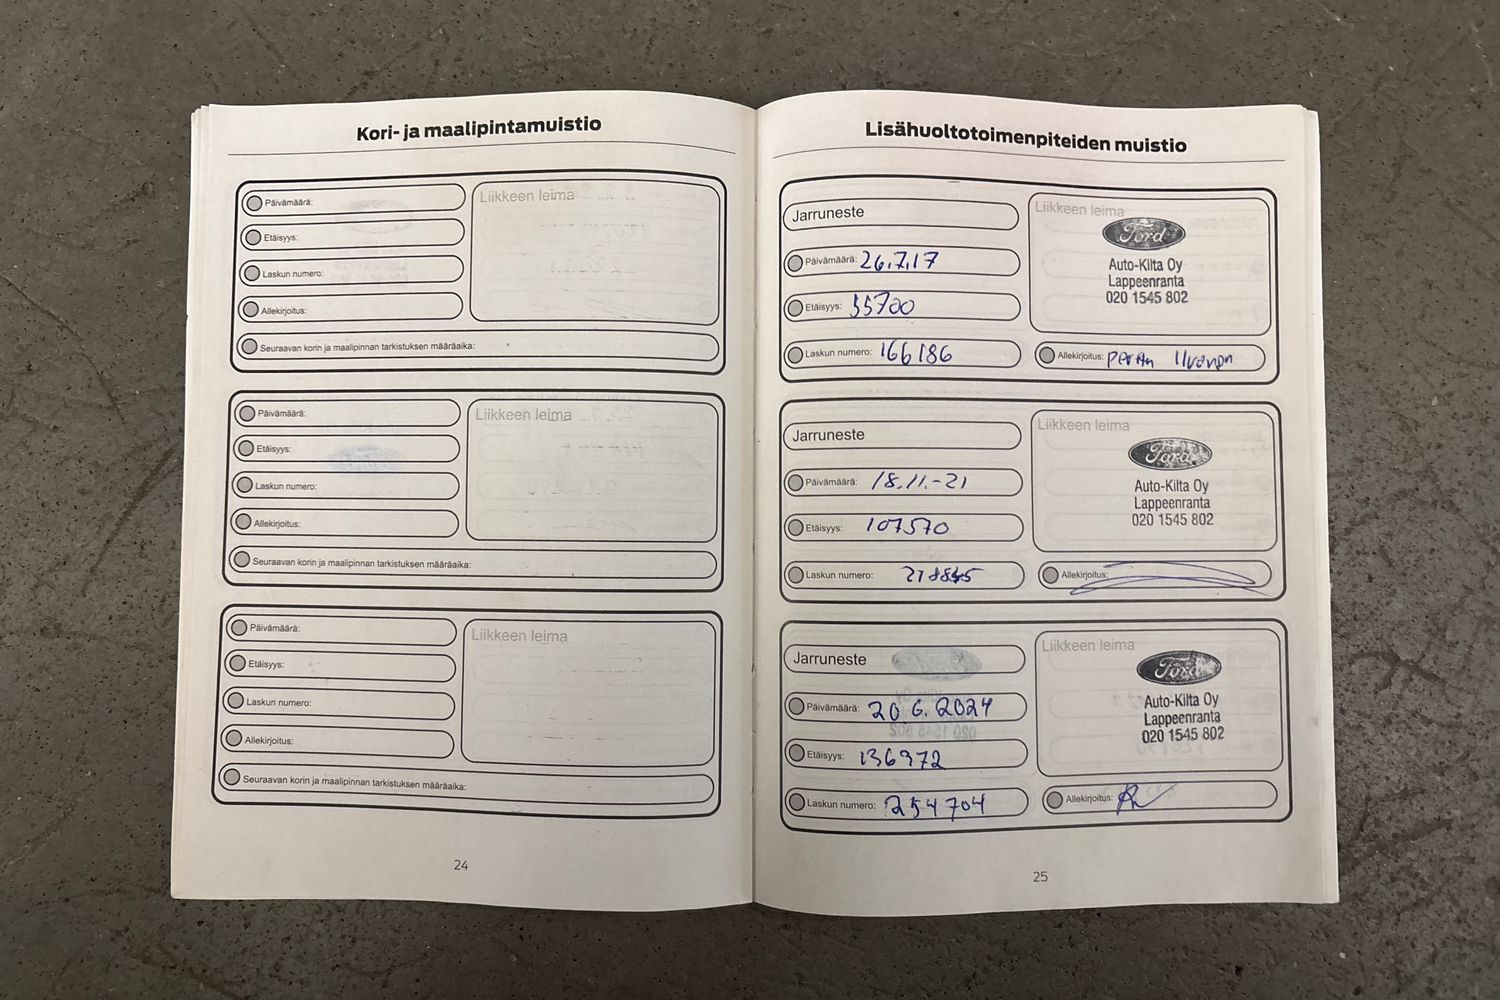 Kori- ja maalipintamuistio
Päivämäärä:
Etäisyys:
Laskun numero:
Allekirjoitus:
Seuraavan korin ja maalipinnan tarkistuksen määräaika:
Liikkeen leima
Päivämäärä:
Etäisyys:
Laskun numero:
Allekirjoitus:
Seuraavan korin ja maalipinnan tarkistuksen määräaika:
Liikkeen leima
Päivämäärä:
Etäisyys:
Laskun numero:
Allekirjoitus:
Seuraavan korin ja maalipinnan tarkistuksen määräaika:
Liikkeen leima
24
Lisähuoltotoimenpiteiden muistio
Jarruneste
Päivämäärä: 26.7.17
Etäisyys: 55700
Laskun numero: 166186
Liikkeen leima
Ford
Auto-Kilta Oy
Lappeenranta
020 1545 802
Allekirjoitus:
Jarruneste
Päivämäärä: 18.11.-21
Etäisyys: 107570
Laskun numero:
Liikkeen leima
Ford
Auto-Kilta Oy
Lappeenranta
020 1545 802
Allekirjoitus:
Jarruneste
Päivämäärä: 20.6.2024
Etäisyys: 136972
Laskun numero: 254704
Liikkeen leima
Ford
Auto-Kilta Oy
Lappeenranta
020 1545 802
Allekirjoitus:
25